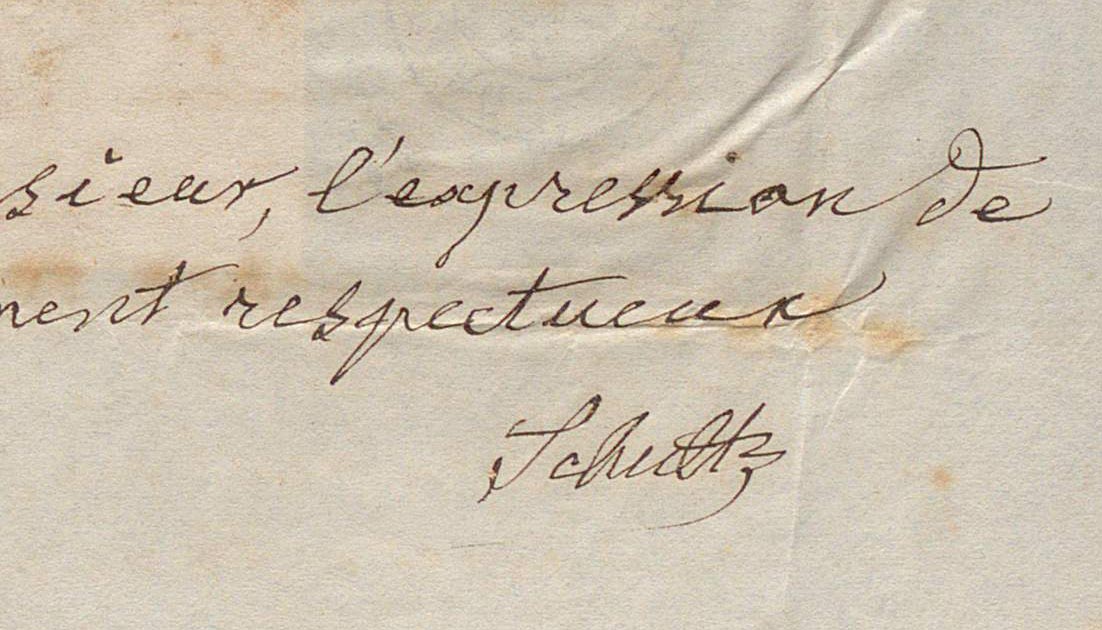 sieur, l'expression de
ment respectueux
Schultz